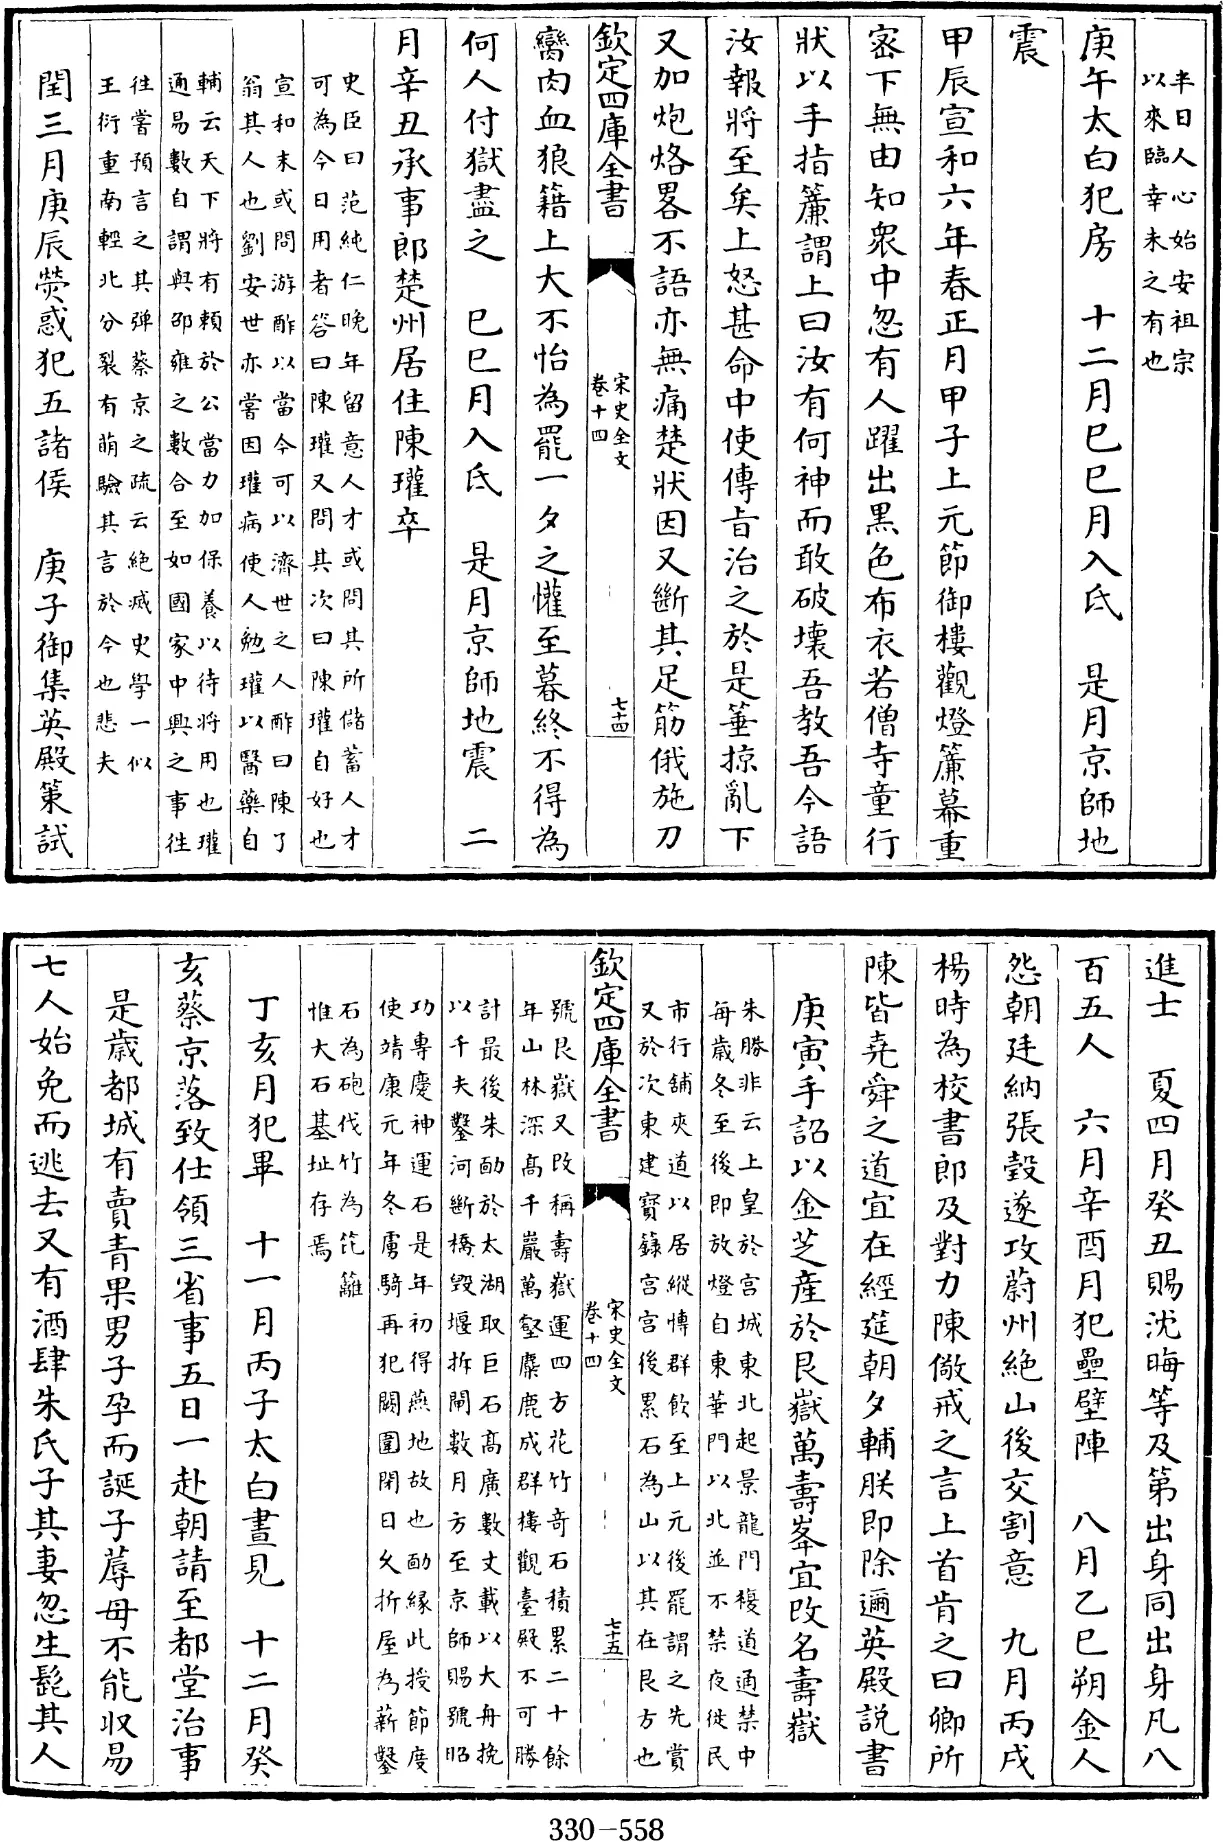 半日人心始安祖宗
以來臨幸未之有也
庚午太白犯房　十二月巳巳月入氐　是月京師地
震
甲辰宣和六年春正月甲子上元節御樓觀燈簾幕重
宻下無由知衆中忽有人躍出黒色布衣若僧寺童行
狀以手指簾謂上曰汝有何神而敢破壊吾教吾今語
汝報將至矣上怒甚命中使傳㫖治之於是箠掠亂下
又加炮烙畧不語亦無痛楚狀因又斷其足筋俄施刀
欽定四庫全書
宋史全文
卷十四
七十四
臠肉血狼籍上大不怡為罷一夕之懽至暮終不得為
何人付獄盡之　巳巳月入氐　是月京師地震　二
月辛丑承事郎楚州居住陳瓘卒
史臣曰范純仁晩年留意人才或問其所儲蓄人才
可為今日用者答曰陳瓘又問其次曰陳瓘自好也
宣和末或問游酢以當今可以濟世之人酢曰陳了
翁其人也劉安世亦嘗因瓘病使人勉瓘以醫藥自
輔云天下將有賴於公當力加保養以待将用也瓘
通易數自謂與邵雍之數合至如國家中興之事徃
徃嘗預言之其彈蔡京之疏云絶滅史學一似
王衍重南輕北分裂有萌驗其言於今也悲夫
閏三月庚辰熒惑犯五諸侯　庚子御集英殿策試
進士　夏四月癸丑賜沈晦等及第出身同出身凡八
百五人　六月辛酉月犯壘壁陣　八月乙巳朔金人
怨朝廷納張㲄遂攻蔚州絶山後交割意　九月丙戌
楊時為校書郎及對力陳儆戒之言上首肯之曰卿所
陳皆堯舜之道宜在經筵朝夕輔朕即除邇英殿説書
庚寅手詔以金芝産於艮嶽萬壽峯宜改名壽嶽
朱勝非云上皇於宫城東北起景龍門複道通禁中
每歳冬至後即放燈自東華門以北並不禁夜徙民
市行舖夾道以居縱慱群飲至上元後罷謂之先賞
又於次東建寳籙宫宫後累石為山以其在艮方也
欽定四庫全書
宋史全文
卷十四
七十五
號艮嶽又改稱壽嶽運四方花竹竒石積累二十餘
年山林深髙千巖萬壑麋鹿成群樓觀臺殿不可勝
計最後朱勔於太湖取巨石髙廣數丈載以大舟挽
以千夫鑿河斷橋毁堰拆閘數月方至京師賜號昭
功專慶神運石是年初得燕地故也勔縁此授節度
使靖康元年冬虜騎再犯闕圍閉日久折屋為薪鑿
石為砲伐竹為笓籬
惟大石基址存焉
丁亥月犯畢　十一月丙子太白晝見　十二月癸
亥蔡京落致仕領三省事五日一赴朝請至都堂治事
是歳都城有賣青果男子孕而誕子蓐母不能収易
七人始免而逃去又有酒肆朱氏子其妻忽生髭其人
330-558